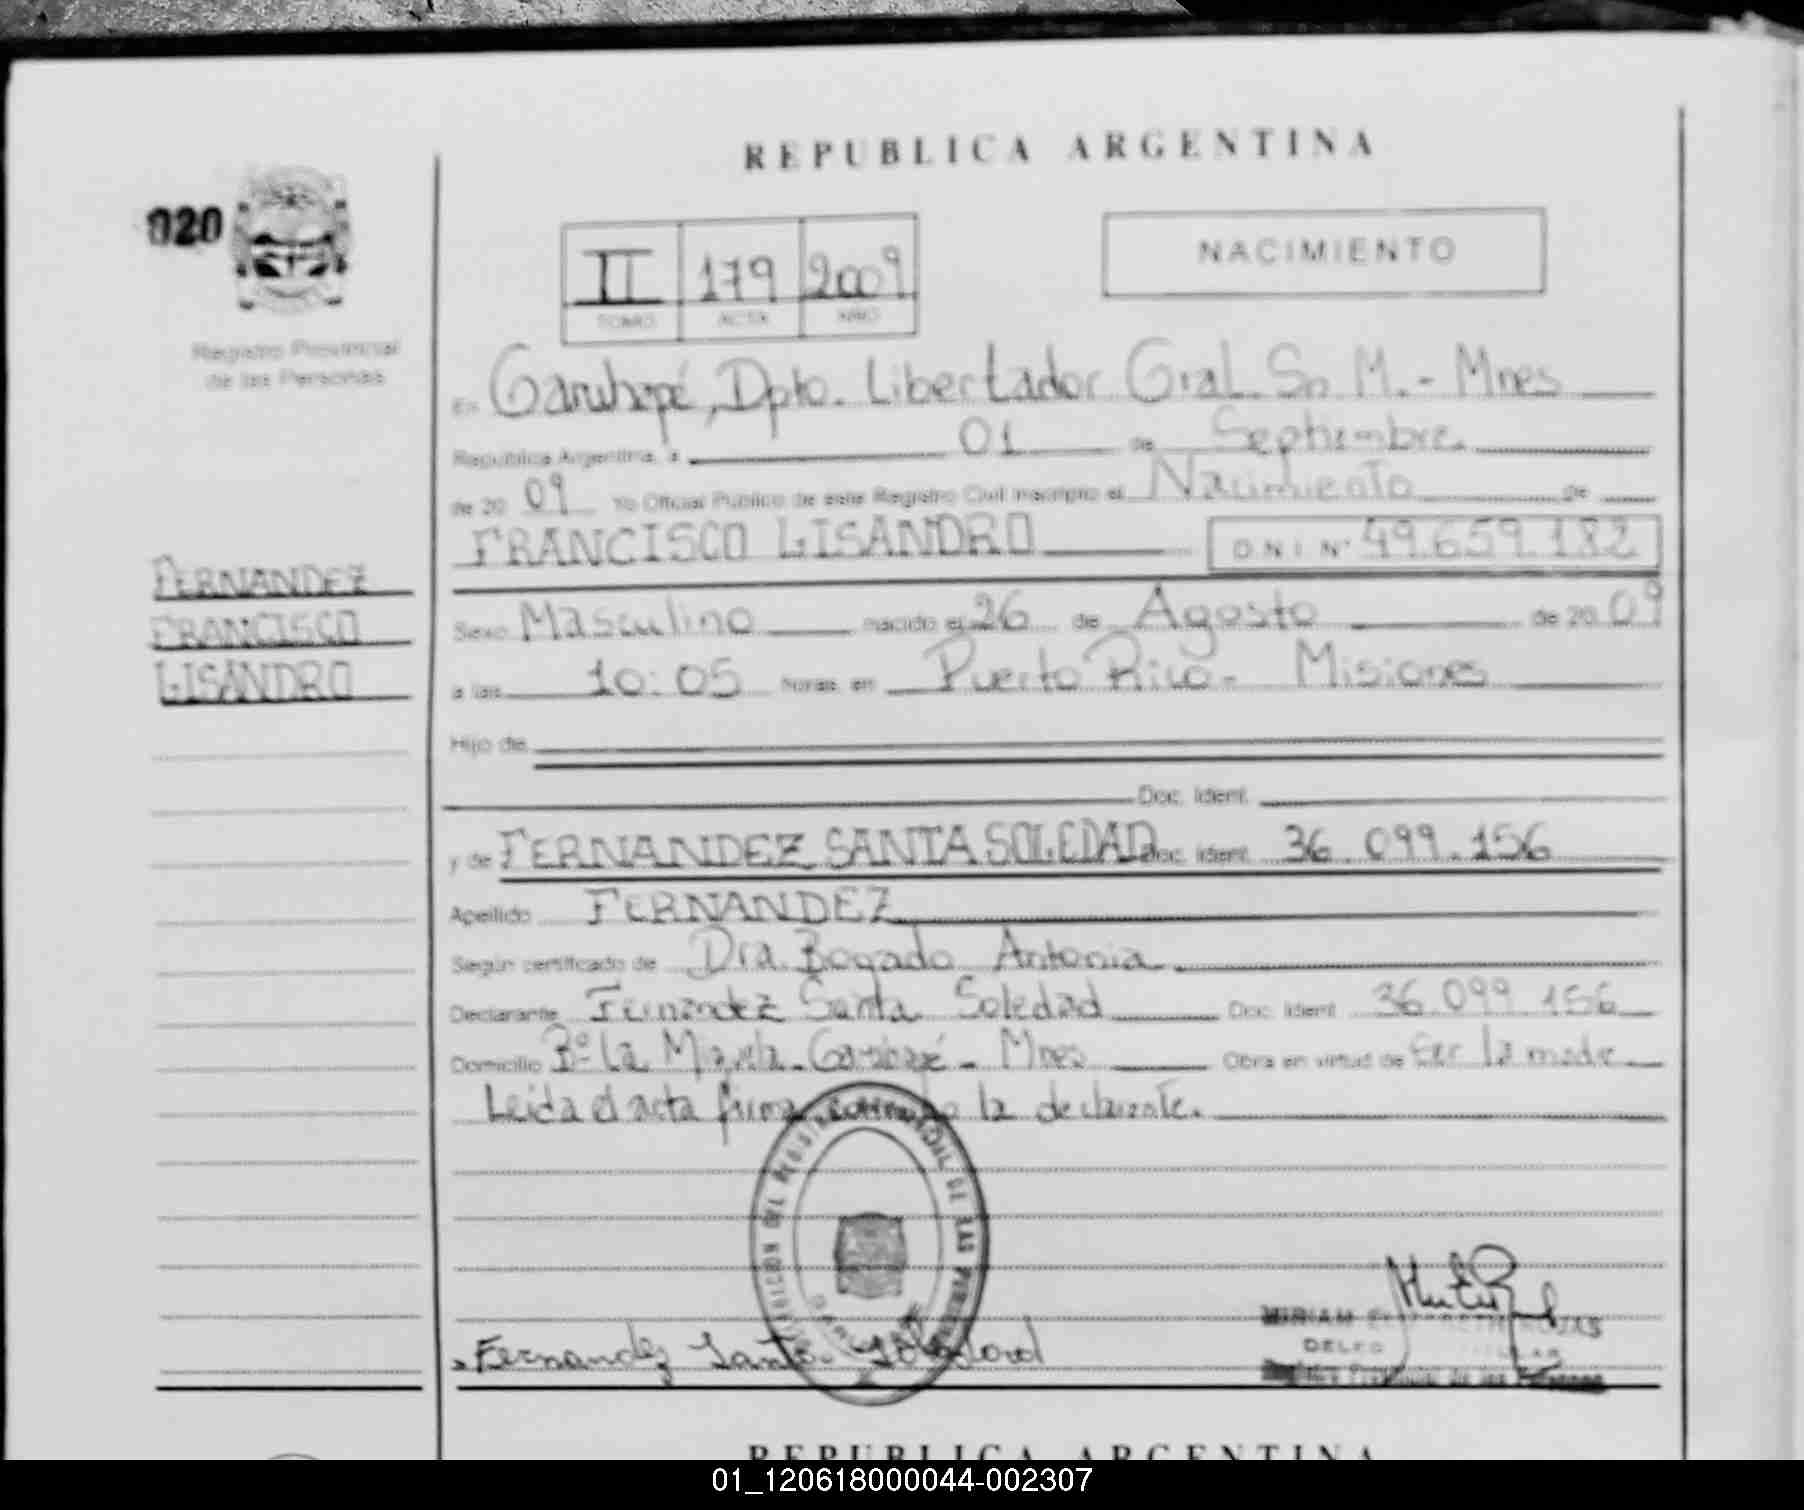 REPUBLICA ARGENTINA
020
Registro Provincial
de las Personas
II 179 2009
TOMO ACTA AÑO
NACIMIENTO
En Garuhapé, Dpto. Libertador Gral. Sn. M. - Mnes
República Argentina, a 01 de Septiembre.
de 20 09 Yo Oficial Público de este Registro Civil inscripto el Nacimiento de
FRANCISCO LISANDRO D.N.I. Nº 49.659.182
FERNANDEZ
FRANCISCO
LISANDRO
Sexo Masculino nacido el 26 de Agosto de 20 09
a las 10:05 horas en Puerto Rico - Misiones
Hijo de
Doc. Ident.
y de FERNANDEZ SANTA SOLEDAD Doc. Ident. 36.099.156
Apellido FERNANDEZ
Según certificado de Dra. Bogado Antonia
Declarante Fernández Santa Soledad Doc. Ident. 36.099.156
Domicilio Bº La Garuhapé - Mnes Obra en virtud de Ser la madre
Leida el acta firma la declarante.
Fernandez Santa Soledad
MIRIAM ROJAS
Registro Provincial de las Personas
REPUBLICA ARGENTINA
01_120618000044-002307